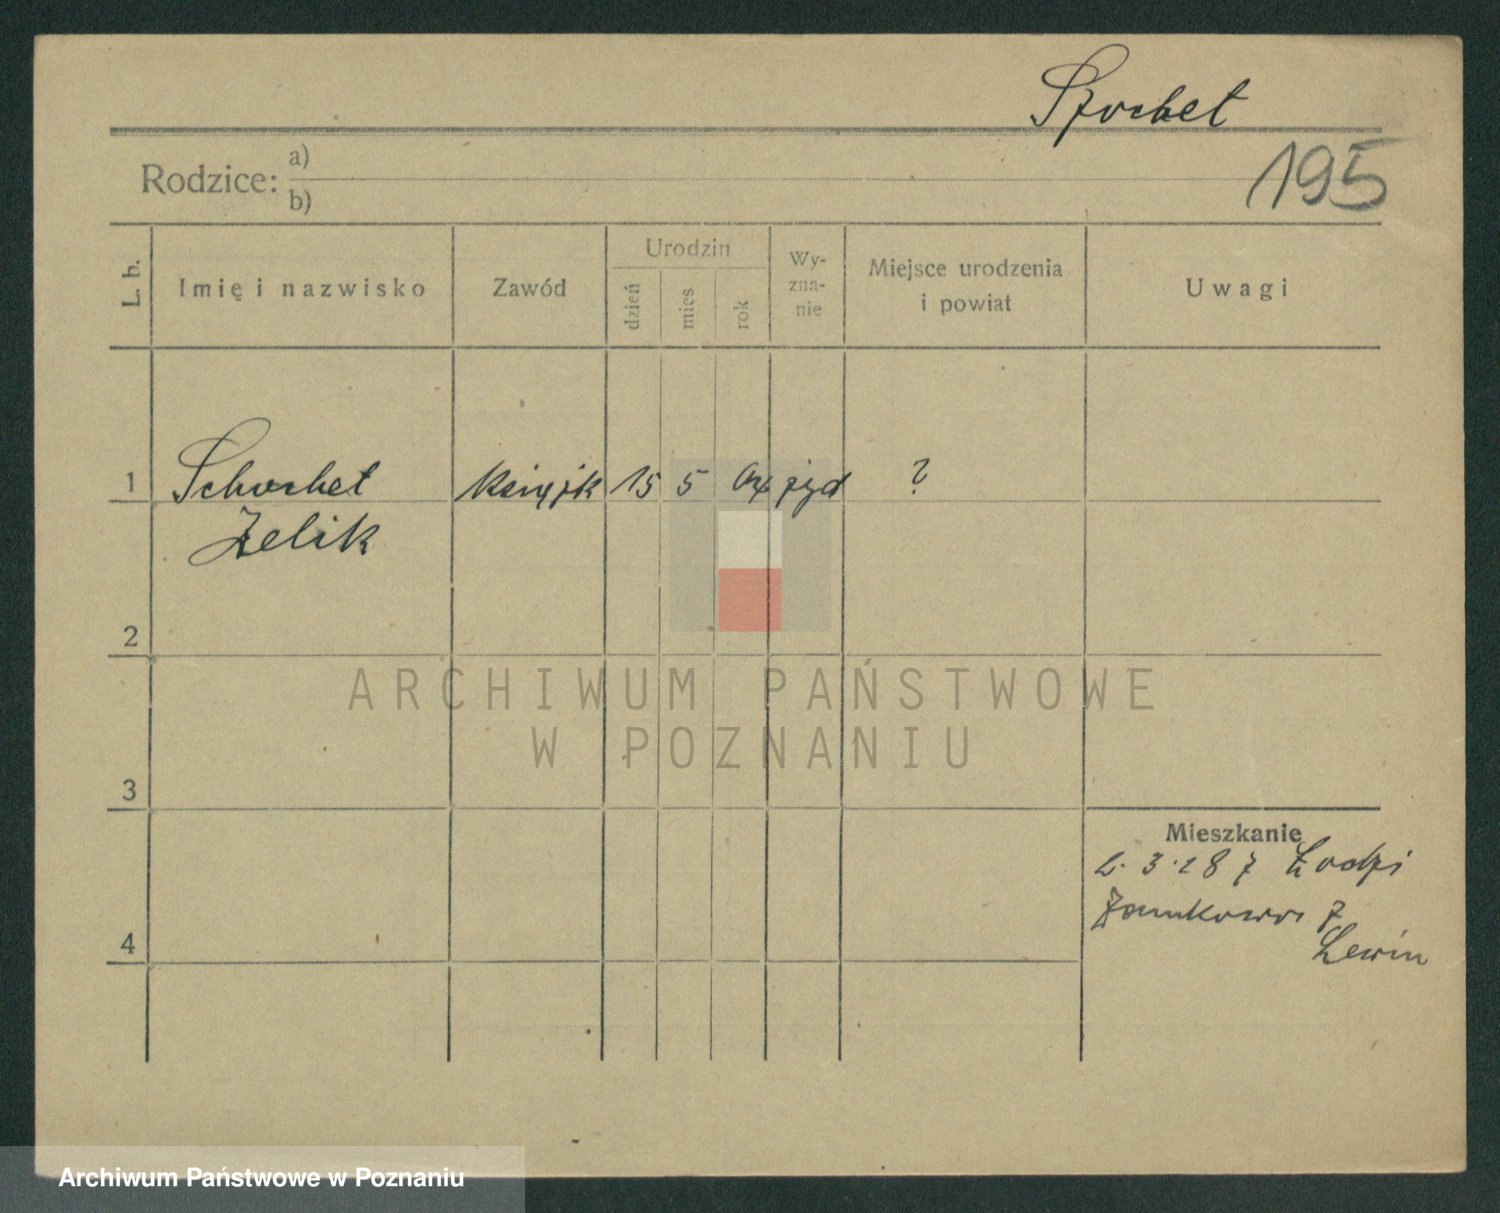 Szochet
195
Rodzice: a)
b)
L. b.
Imię i nazwisko
Zawód
Urodzin
dzień
mies
rok
Wy-
zna-
nie
Miejsce urodzenia
i powiat
Uwagi
1
Schochet
Zelik
15
5
żyd
?
2
3
4
Mieszkanie
2. 3. 28 z Łodzi
Zamkowa 7
Lewin
ARCHIWUM PAŃSTWOWE
W POZNANIU
Archiwum Państwowe w Poznaniu